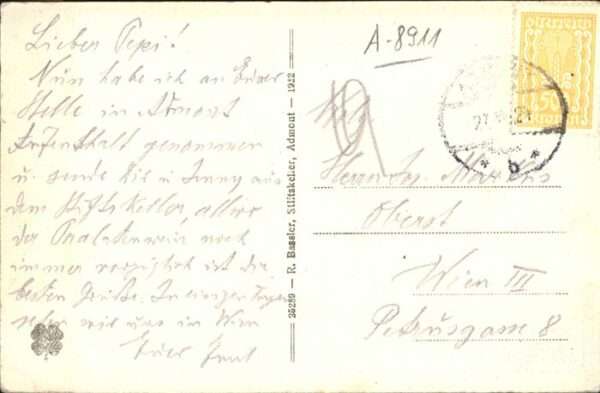 A-8911
Lieber Pepi!
Nun habe ich an Eurer
Stelle in Admont
Aufenthalt genommen
u. sende Dir u. aus
dem Stiftskeller, allwo
der noch
immer vorzüglich ist die
besten Grüße. In einigen Tagen
sehen wir uns in Wien
Euer
25289 — R. Bassler, Stiftskeller, Admont — 1922
österreich
50
27
* b *
Herrn
Oberst
Wien III
Petrusgasse 8